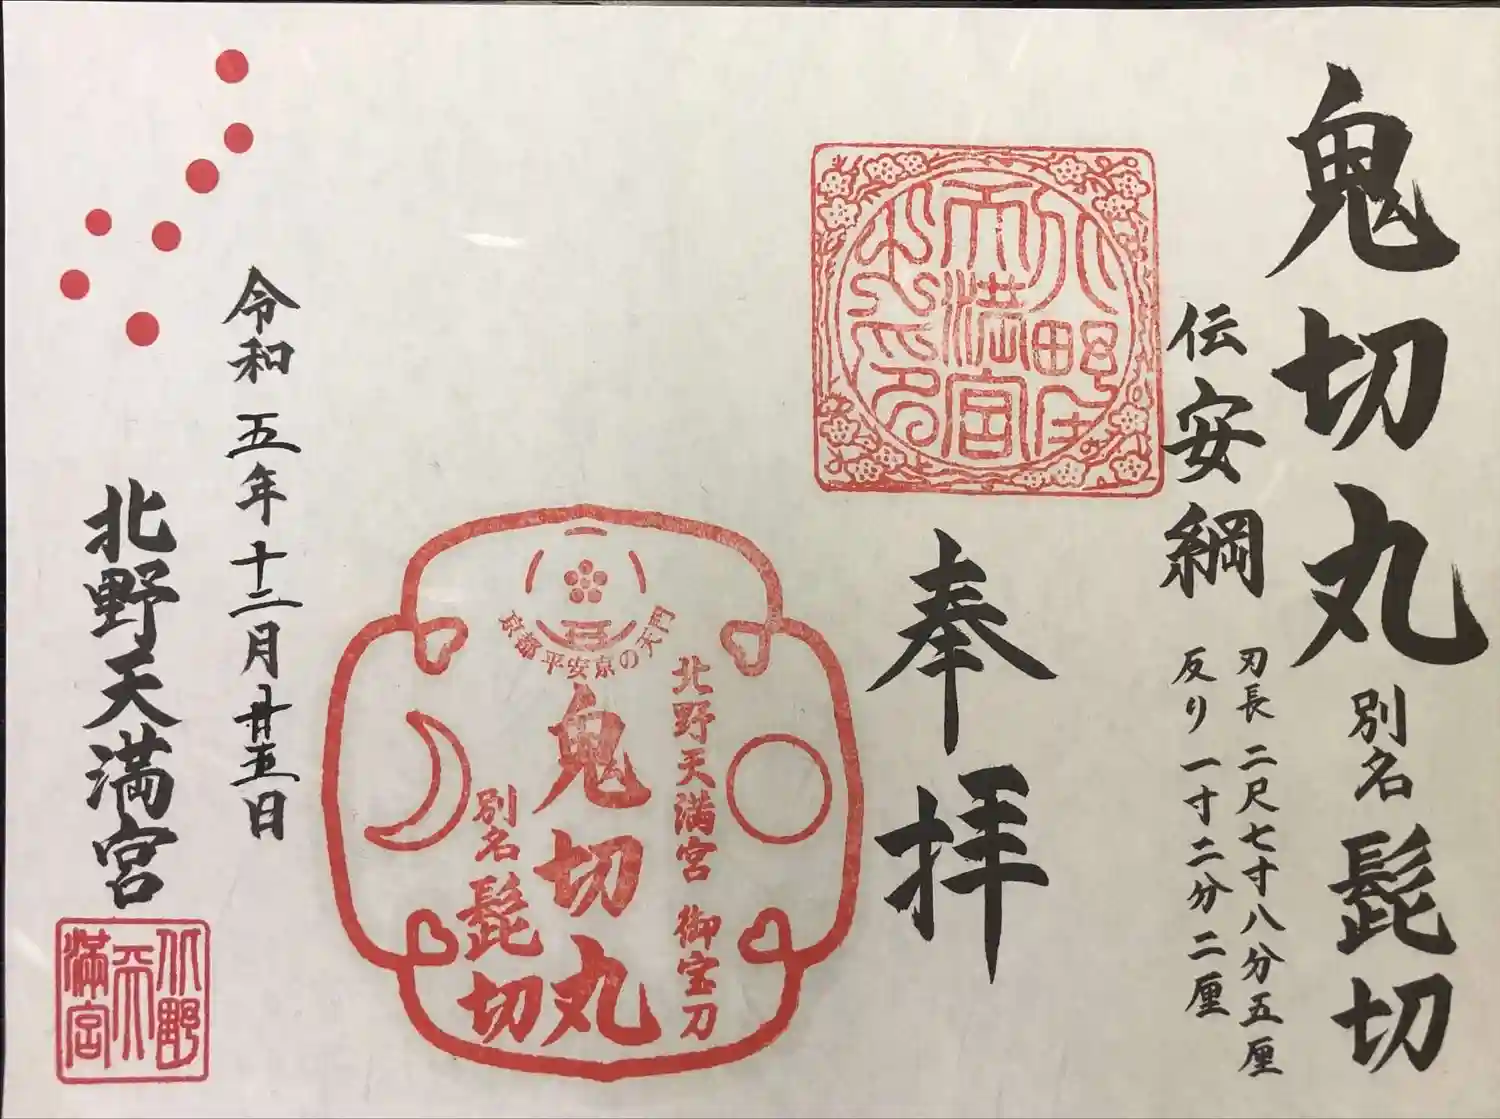 鬼切丸 別名 髭切
伝安綱
刃長 二尺七寸八分五厘
反り 一寸二分二厘
奉拝
北野天満宮 御宝刀
京都平安京の天門
鬼切丸
別名 髭切
令和五年十二月廿五日
北野天満宮
北野
天
満宮